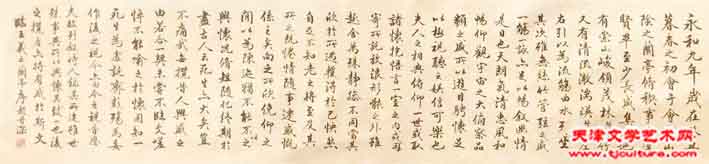 永和九年歲在癸丑
暮春之初會于會稽山
陰之蘭亭脩稧事也羣
賢畢至少長咸集此地
有崇山峻領茂林脩竹
又有清流激湍映帶左
右引以為流觴曲水列坐
其次雖無絲竹管弦之盛
一觴一詠亦足以暢敘幽情
是日也天朗氣清惠風和
暢仰觀宇宙之大俯察品
類之盛所以遊目騁懷足
以極視聽之娛信可樂也
夫人之相與俯仰一世或取
諸懷抱悟言一室之內或因
寄所託放浪形骸之外雖
趣舍萬殊靜躁不同當其
欣於所遇暫得於己快然
自足不知老之將至及其
所之既惓情隨事遷感慨
係之矣向之所欣俛仰之
間以為陳迹猶不能不以之
興懷況脩短隨化終期於
盡古人云死生亦大矣豈
不痛哉每攬昔人興感之
由若合一契未嘗不臨文嗟
悼不能喻之於懷固知一
死生為虛誕齊彭殤為妄
作後之視今亦由今之視昔悲
夫故列敘時人錄其所述雖世
殊事異所以興懷其致一也後
之攬者亦將有感於斯文
臨王羲之蘭亭序
天津文学艺术网
www.tjculture.com